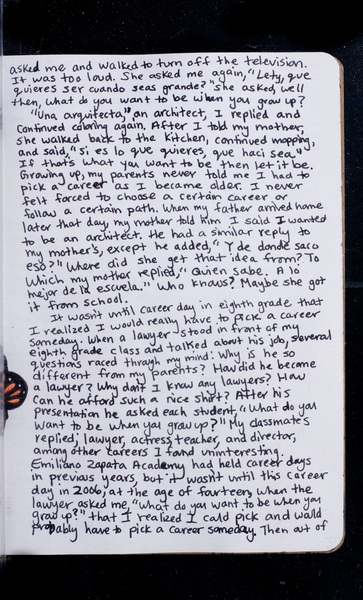 asked me and walked to turn off the television.
It was too loud. She asked me again, "Lety, que
quieres ser cuando seas grande?" She asked, well
then, what do you want to be when you grow up?
"Una arquitecta," an architect, I replied and
continued coloring again. After I told my mother,
she walked back to the kitchen, continued mopping,
and said, "Si es lo que quieres, que haci sea,"
If that's what you want to be then let it be.
Growing up, my parents never told me I had to
pick a career as I became older. I never
felt forced to choose a certain career or
follow a certain path. When my father arrived home
later that day, my mother told him I said I wanted
to be an architect. He had a similar reply to
my mother's, except he added, "Y de donde saco
eso?" Where did she get that idea from? To
which my mother replied, "Quien sabe. A lo
mejor de la escuela." Who knows? Maybe she got
it from school.
It wasn't until career day in eighth grade that
I realized I would really have to pick a career
someday. When a lawyer stood in front of my
eighth grade class and talked about his job, several
questions raced through my mind: Why is he so
different from my parents? How did he become
a lawyer? Why don't I know any lawyers? How
can he afford such a nice shirt? After his
presentation he asked each student, "What do you
want to be when you grow up?" My classmates
replied; lawyer, actress, teacher, and director,
among other careers I found uninteresting.
Emiliano Zapata Academy had held career days
in previous years, but it wasn't until this career
day in 2006, at the age of fourteen, when the
lawyer asked me, "What do you want to be when you
grow up?" that I realized I could pick and would
probably have to pick a career someday. Then out of